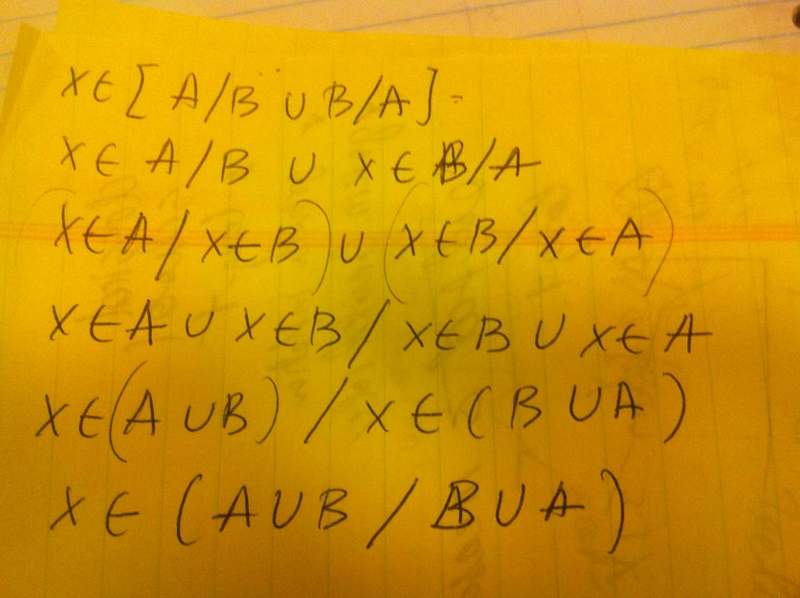 x ∈ [ A/B ∪ B/A ] =
x ∈ A/B ∪ x ∈ B/A
(x ∈ A / x ∈ B) ∪ (x ∈ B / x ∈ A)
x ∈ A ∪ x ∈ B / x ∈ B ∪ x ∈ A
x ∈ (A ∪ B) / x ∈ (B ∪ A)
x ∈ (A ∪ B / B ∪ A)